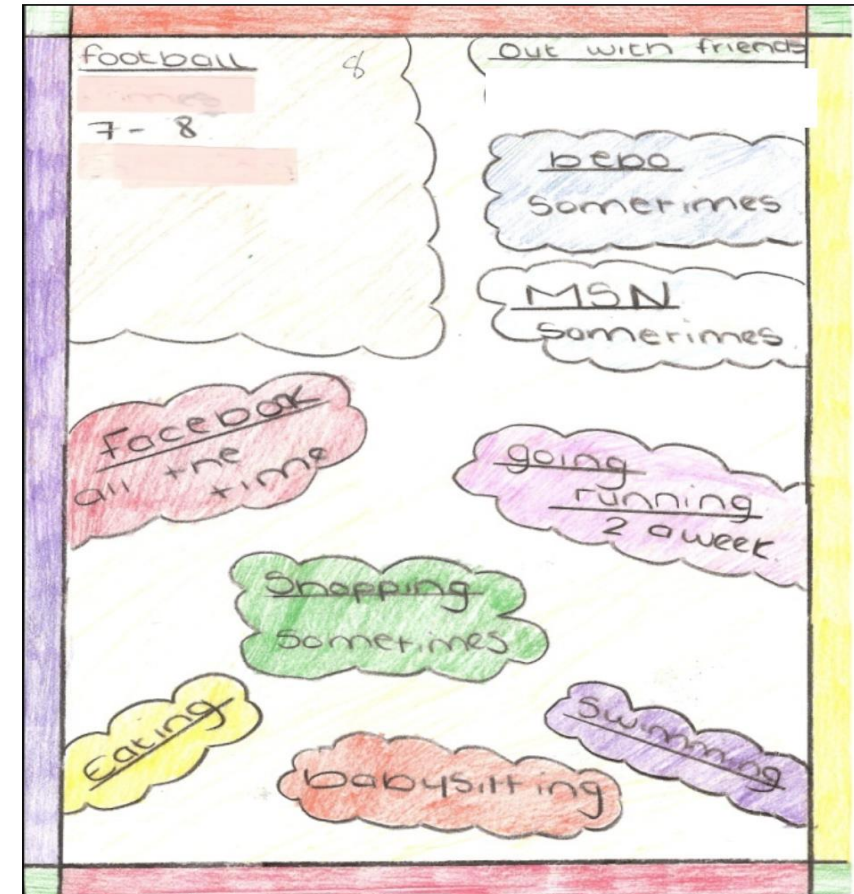 football 8
7 - 8
Out with friends
bebo
sometimes
MSN
sometimes
Facebook
all the
time
going
running
2 a week
Shopping
sometimes
Eating
babysitting
Swimming